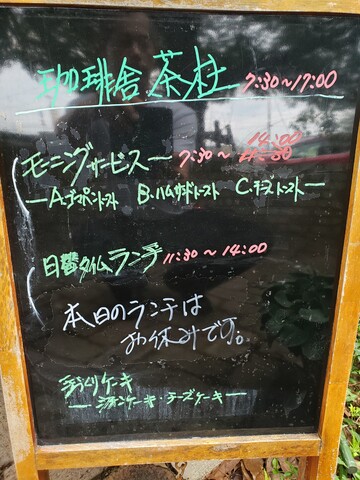 珈琲舎 茶柱 7:30〜17:00
モーニングサービス ー 7:30〜 14:00
ーA.コッペパントースト B.ハムサンドトースト C.チーズトーストー
日替タイムランチ 11:30〜14:00
本日のランチは
お休みです。
手づくりケーキ
ー シフォンケーキ・チーズケーキ ー